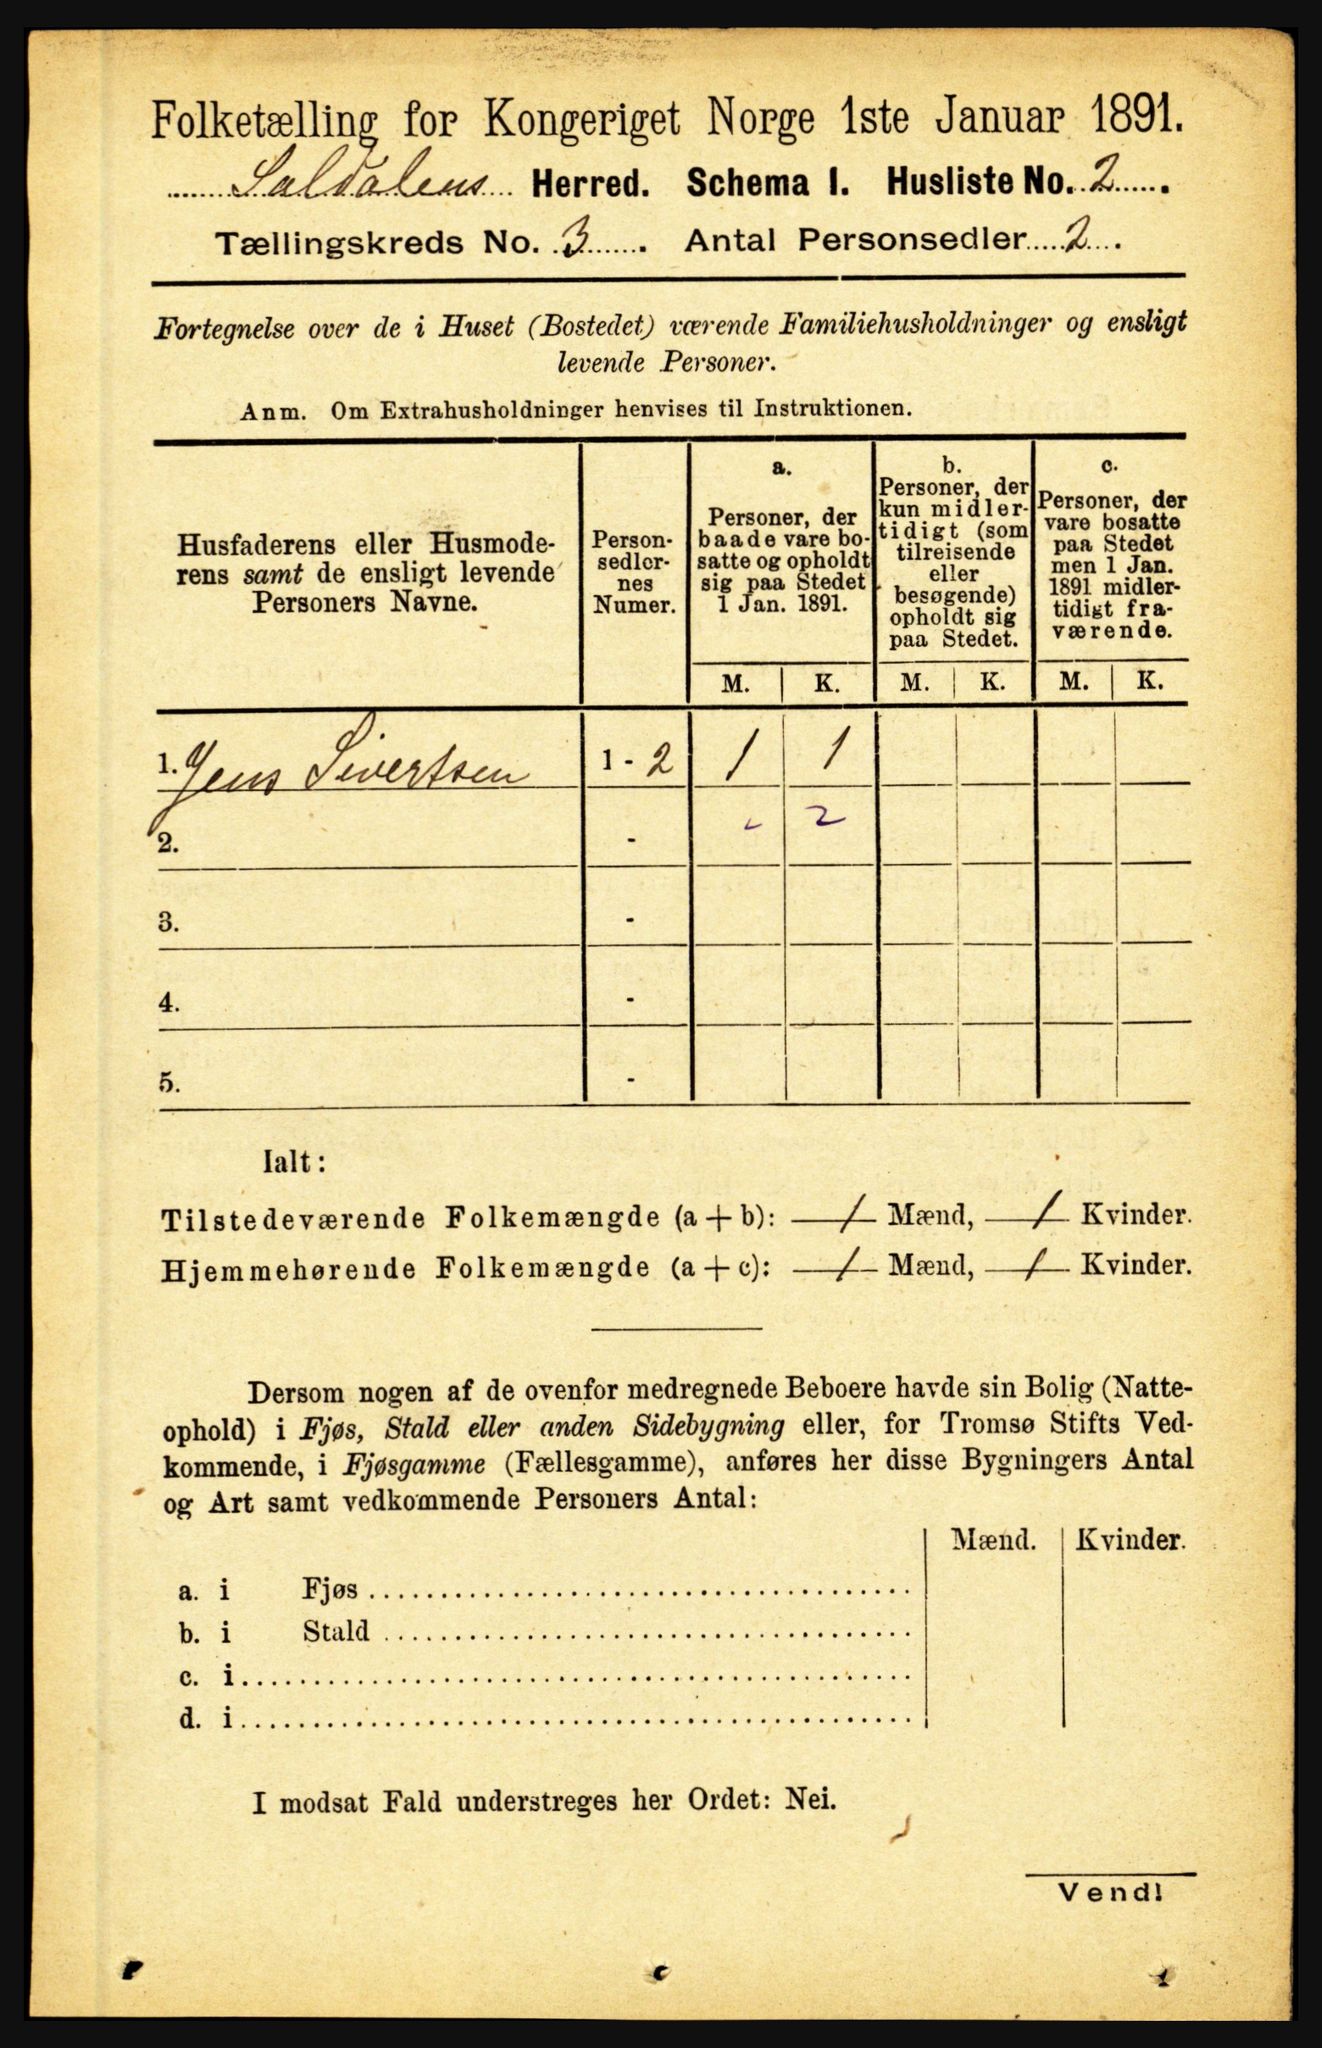 Folketælling for Kongeriget Norge 1ste Januar 1891.
Saldalens Herred. Schema I. Husliste No. 2.
Tællingskreds No. 3. Antal Personsedler 2.
Fortegnelse over de i Huset (Bostedet) værende Familiehusholdninger og ensligt
levende Personer.
Anm. Om Extrahusholdninger henvises til Instruktionen.
Husfaderens eller Husmode-
rens samt de ensligt levende
Personers Navne.
Person-
sedler-
nes
Numer.
a.
Personer, der
baade vare bo-
satte og opholdt
sig paa Stedet
1 Jan. 1891.
b.
Personer, der
kun midler-
tidigt (som
tilreisende
eller
besøgende)
opholdt sig
paa Stedet.
c.
Personer, der
vare bosatte
paa Stedet
men 1 Jan.
1891 midler-
tidigt fra-
værende.
M. K. M. K. M. K.
1. Jens Sivertsen 1 - 2 1 1
2. - 2
3. -
4. -
5. -
Ialt:
Tilstedeværende Folkemængde (a + b): 1 Mænd, 1 Kvinder.
Hjemmehørende Folkemængde (a + c): 1 Mænd, 1 Kvinder.
Dersom nogen af de ovenfor medregnede Beboere havde sin Bolig (Natte-
ophold) i Fjøs, Stald eller anden Sidebygning eller, for Tromsø Stifts Ved-
kommende, i Fjøsgamme (Fællesgamme), anføres her disse Bygningers Antal
og Art samt vedkommende Personers Antal:
Mænd. Kvinder.
a. i Fjøs
b. i Stald
c. i
d. i
I modsat Fald understreges her Ordet: Nei.
Vend!